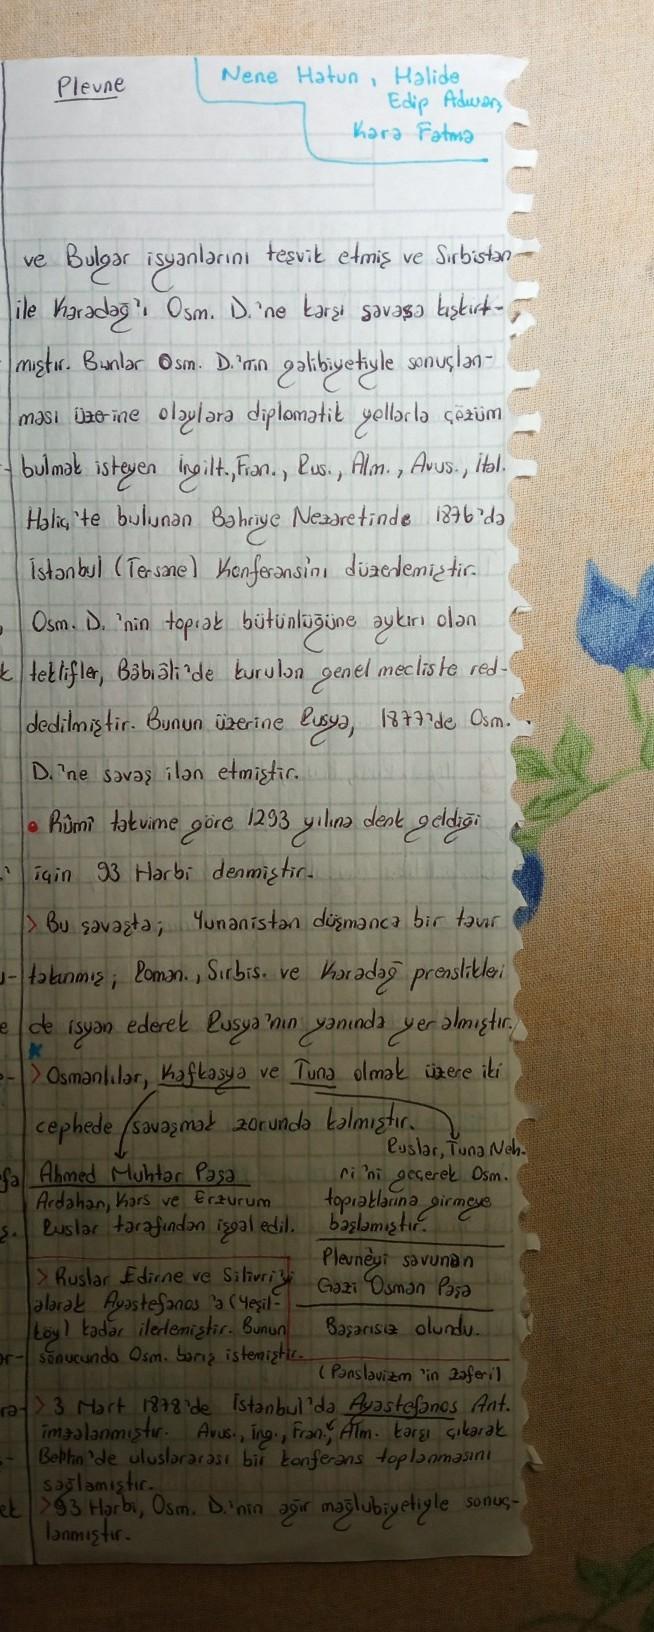 Plevne
Nene Hatun, Halide
Edip Adıvar,
Kara Fatma
ve Bulgar isyanlarını teşvik etmiş ve Sırbistan
ile Karadağ'ı Osm. D.'ne karşı savaşa kışkırt-
mıştır. Bunlar Osm. D.'nin galibiyetiyle sonuçlan-
ması üzerine olaylara diplomatik yollarla çözüm
bulmak isteyen İngilt., Fran., Rus., Alm., Avus., İtal.
Haliç'te bulunan Bahriye Nezaretinde 1876'da
İstanbul (Tersane) Konferansı'nı düzenlemiştir.
Osm. D.'nin toprak bütünlüğüne aykırı olan
teklifler, Bâbıâli'de kurulan genel mecliste red-
dedilmiştir. Bunun üzerine Rusya, 1877'de Osm.
D.'ne savaş ilan etmiştir.
• Rûmî takvime göre 1293 yılına denk geldiği
için 93 Harbi denmiştir.
> Bu savaşta; Yunanistan düşmanca bir tavır
takınmış; Roman., Sırbis. ve Karadağ prenslikleri
de isyan ederek Rusya'nın yanında yer almıştır.
> Osmanlılar, Kafkasya ve Tuna olmak üzere iki
cephede savaşmak zorunda kalmıştır.
Ahmed Muhtar Paşa
Ardahan, Kars ve Erzurum
Ruslar tarafından işgal edil.
Ruslar, Tuna Neh-
ri'ni geçerek Osm.
topraklarına girmeye
başlamıştır.
Plevneyi savunan
Gazi Osman Paşa
Başarısız olundu.
> Ruslar Edirne ve Silivri'yi
alarak Ayastefanos'a (Yeşil-
köy) kadar ilerlemiştir. Bunun
sonucunda Osm. barış istemiştir.
(Panslavizm'in zaferi)
> 3 Mart 1878'de İstanbul'da Ayastefanos Ant.
imzalanmıştır. Avus., İng., Fran., Alm. karşı çıkarak
Berlin'de uluslararası bir konferans toplanmasını
sağlamıştır.
> 93 Harbi, Osm. D.'nin ağır mağlubiyetiyle sonuç-
lanmıştır.